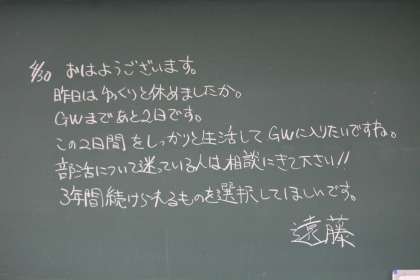 4/30 おはようございます。
昨日はゆっくりと休めましたか。
GWまであと2日です。
この2日間をしっかりと生活してGWに入りたいですね。
部活について迷っている人は相談にきて下さい!!
3年間続けられるものを選択してほしいです。
遠藤